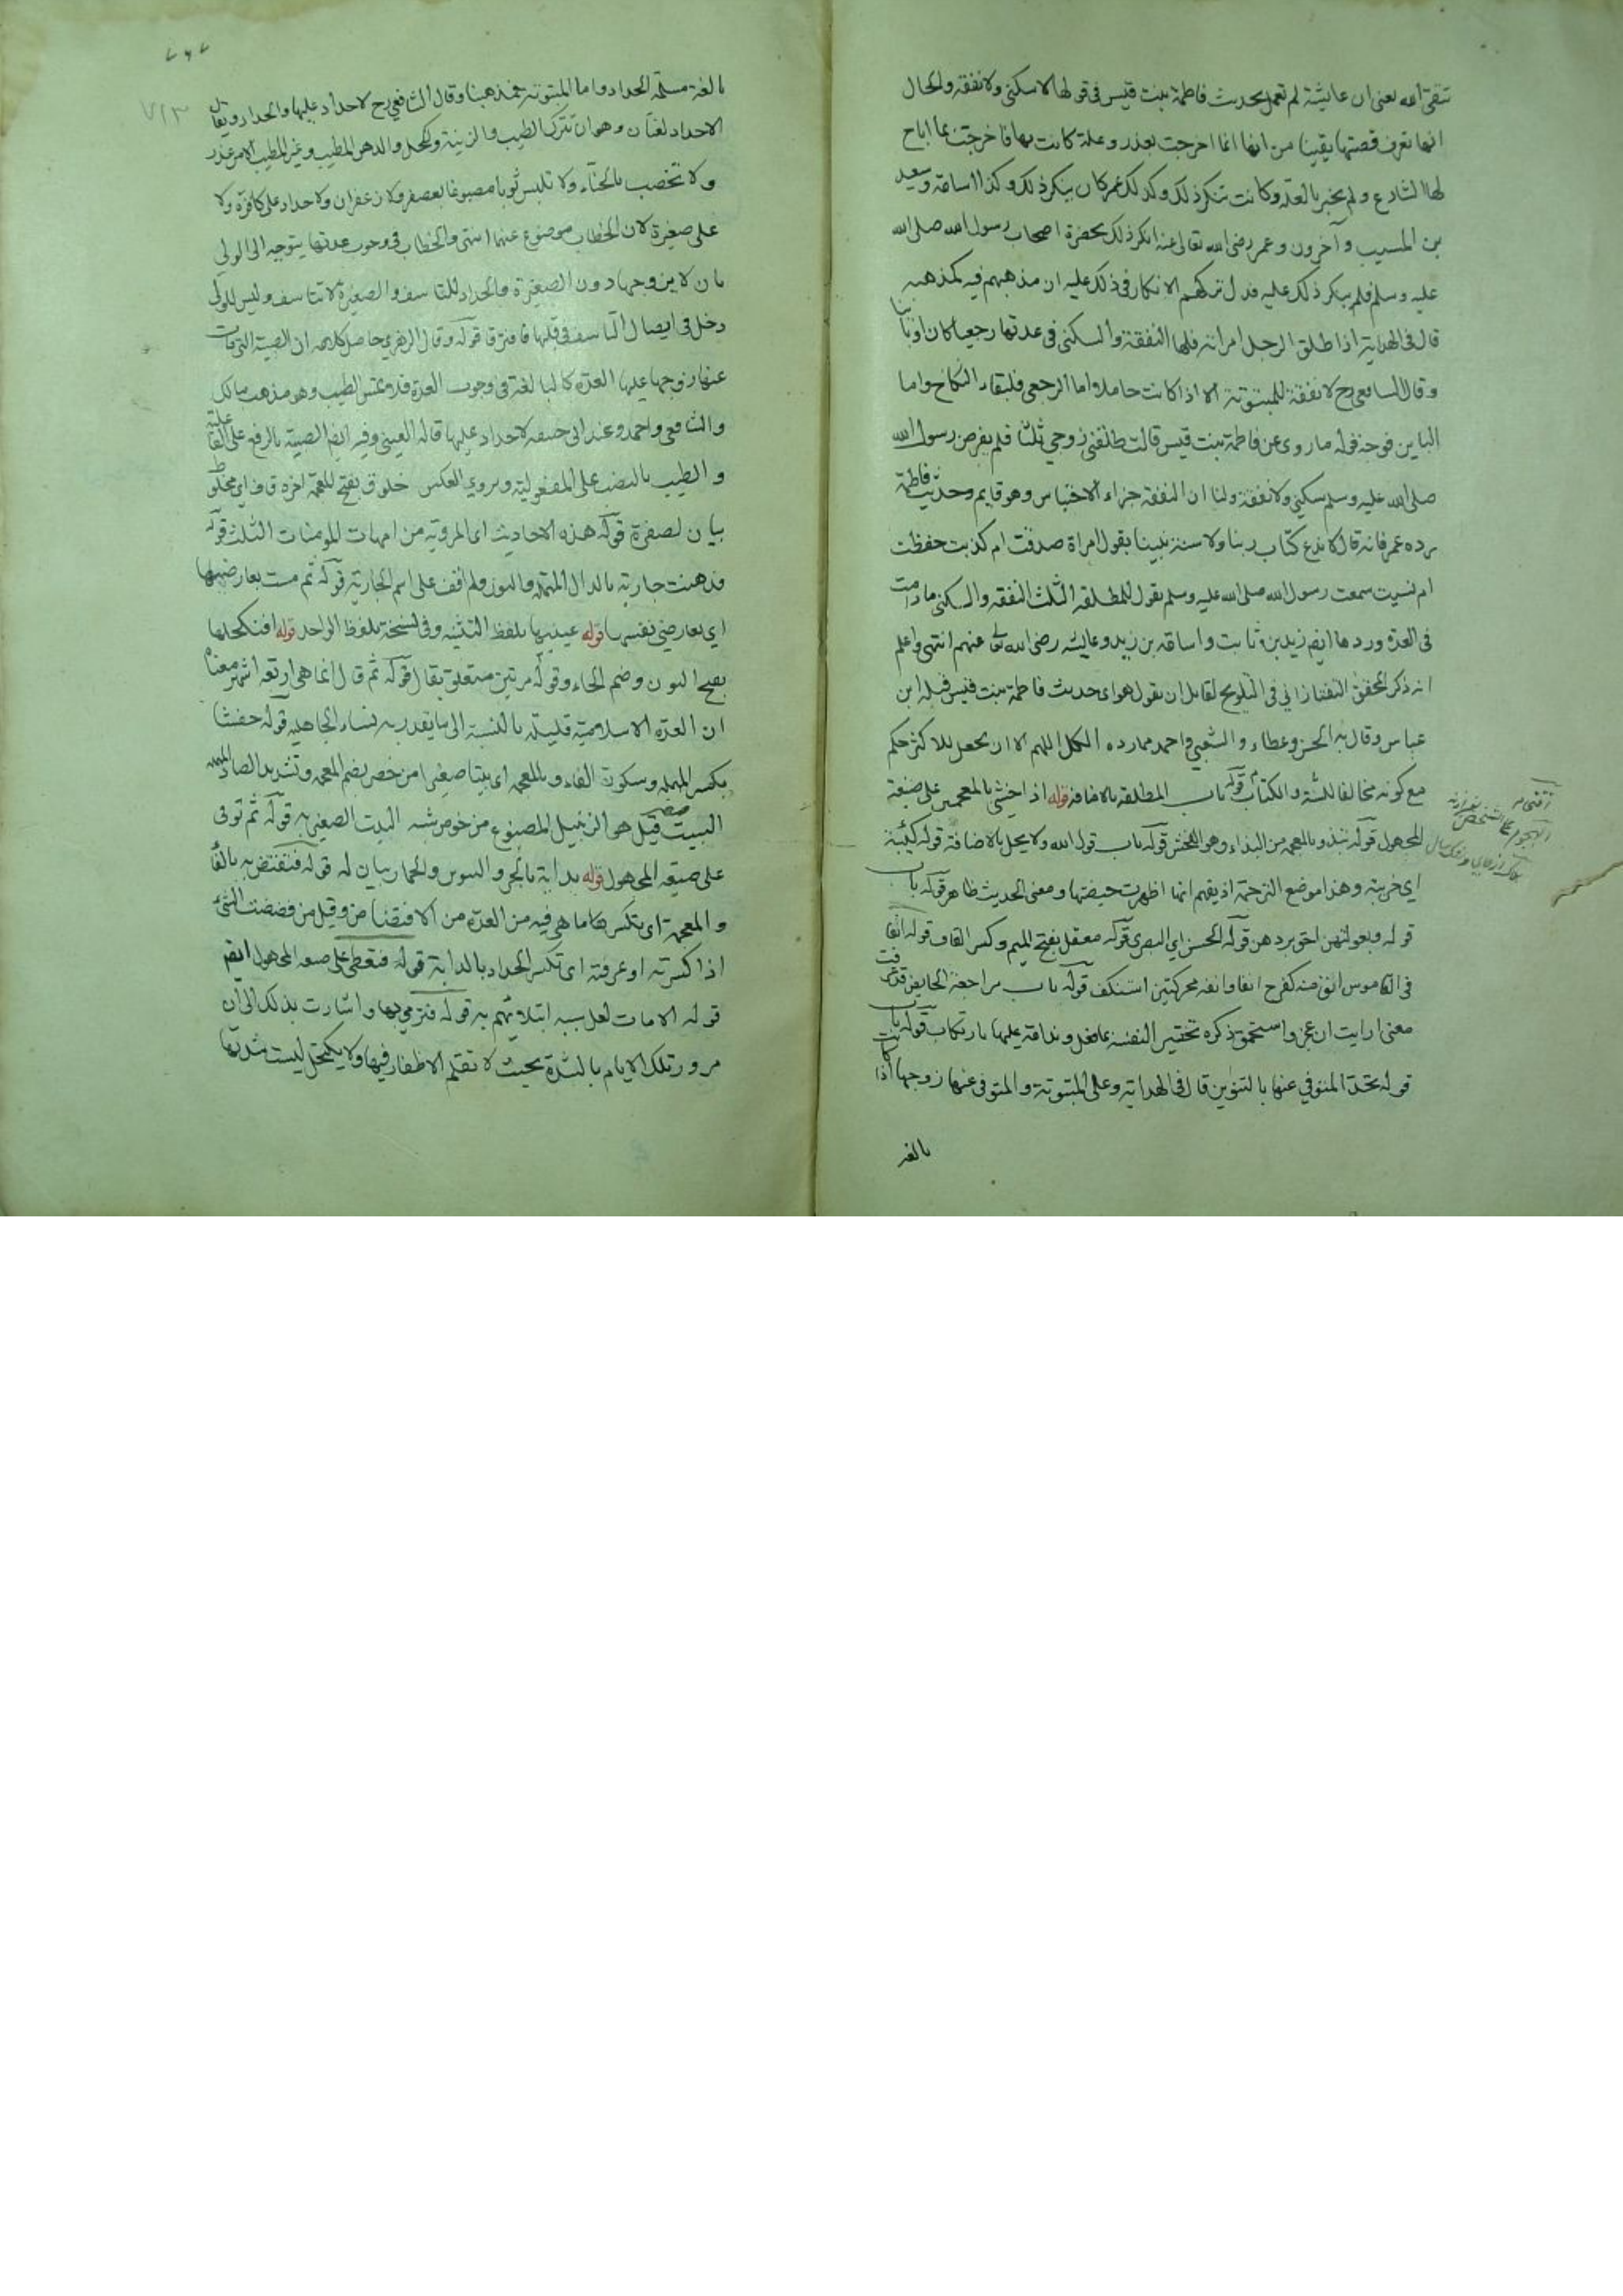 تتقى الله يعنى ان عايشة لم تعمل بحديث فاطمة بنت قيس فى قولها لا سكنى ولا نفقة والحال
انها تعرف قصتها يقينا من انها انما اخرجت بعذر وعلة كانت بها فاخرجت بما اباح
لها الشارع ولم يخبر بالعلة وكانت تنكر ذلك وكذلك عمر كان ينكر ذلك وكذا اسامة وسعيد
بن المسيب وآخرون وعمر رضى الله تعالى عنه انكر ذلك بحضرة اصحاب رسول الله صلى الله
عليه وسلم فلم ينكر ذلك عليه فدل تركهم الانكار فى ذلك عليه ان مذهبهم فيه كمذهبه
قال فى الهداية اذا طلق الرجل امراته فلها النفقة والسكنى فى عدتها رجعيا كان او باينا
وقال الشافعى رح لا نفقة للمبتوتة الا اذا كانت حاملا واما الرجعى فلبقاء النكاح واما
الباين فوجه قوله ما روى عن فاطمة بنت قيس قالت طلقنى زوجى ثلثا فلم يفرض رسول الله
صلى الله عليه وسلم سكنى ولا نفقة ولنا ان النفقة جزاء الاحتباس وهو قايم وحديث فاطمة
رده عمر فانه قال لا ندع كتاب ربنا ولا سنة نبينا بقول امراة صدقت ام كذبت حفظت
ام نسيت سمعت رسول الله صلى الله عليه وسلم يقول للمطلقة الثلث النفقة والسكنى ما دامت
فى العدة وردها ايضم زيد بن ثابت واسامة بن زيد وعايشه رضى الله تع عنهم انتهى واعلم
انه ذكر المحقق التفتازانى فى التلويح لقايل ان يقول هو اى حديث فاطمة بنت قيس قبله ابن
عباس وقال به الحسن وعطاء والشعبى واحمد مما رده الكل اللهم الا ان يجعل للاكثر حكم
مع كونه مخالفا للسنة والكتاب قوله باب المطلقة بالاضافة قوله اذا خشى بالمعجمتين على صيغة
المجهول قوله تبذو بالمعجمة من البذاء وهو الفحش قوله باب قول الله ولا يحل بالاضافة قوله كئيبة
اى حزينة وهذا موضع الترجمة اذ يفهم انها اظهرت حيضتها ومعنى الحديث ظاهر قوله باب
قوله وبعولتهن احق بردهن قوله الحسن اى البصرى قوله معقل بفتح الميم وكسر القاف قوله انفا
فى القاموس انف منه كفرح انفا وانفة محركتين استنكف قوله باب مراجعة الحايض قد
معنى ارايت ان عجز واستحمق ذكره تحقير النفسه بما فعل وندامة عليها بارتكاب قوله باب
قوله تحد المتوفى عنها بالتنوين قال فى الهداية وعلى المبتوتة والمتوفى عنها زوجها اذا كانت
بالغة
٧١٣
بالغة مسلمة الحداد واما المبتوتة فمذهبنا وقال الشافعى رح لا حداد عليها والحداد ويقال
الاحداد لغتان وهو ان تترك الطيب والزينة والكحل والدهن المطيب وغير المطيب الا من عذر
ولا تخضب بالحناء ولا تلبس ثوبا مصبوغا بعصفر ولا زعفران ولا حداد على كافرة ولا
على صغيرة لان الخطاب موضوع عنهما انتهى والخطاب فى وجوب عدتها يتوجه الى الولى
بان لا يزوجها دون الصغيرة والحداد للتاسف والصغيرة لا تتاسف وليس للولى
دخل فى ايصال التاسف فى قلبها فافترقا قوله وقال الزهرى حاصل كلامه ان الصبية التى مات
عنها زوجها عليها العدة كالبالغة فى وجوب العدة فلا تمس الطيب وهو مذهب مالك
والشافعى واحمد وعند ابى حنيفه لا حداد عليها قاله العينى وفيه ايضم الصبية بالرفع على الفاعلية
والطيب بالنصب على المفعولية ويروى العكس خلوق بفتح للمعجمة اخره قاف اى مخلوق
بيان لصفرة قوله هذه الاحاديث اى المروية من امهات المومنات الثلث قوله
فدهنت جارية بالدال المهملة والنون ولم اقف على اسم الجارية قوله ثم مست بعارضيها
اى بعارضى نفسها قوله عينيها بلفظ التثنية وفى نسخة بلفظ الواحد قوله افنكحلها
بفتح النون وضم الحاء وقوله مرتين متعلق بقال قوله ثم قال انما هى اربعة اشهر معناه
ان العدة الاسلامية قليلة بالنسبة الى ما يقدر به نساء الجاهلية قوله حفشا
بكسر المهملة وسكون الفاء وبالمعجمة اى بيتا صغيرا من خص بضم المعجمة وتشديد الصاد المهملة
البيت قيل هو الزنبيل المصنوع من خوص شبه البيت الصغير به قوله ثم توتى
على صيغة المجهول قوله بدابة بالجر والتنوين والحمار بيان له قوله فتفتض به بالفاء
والمعجمة اى تكسر بها ما هى فيه من العدة من الافتضاض وقيل من فضضت الشئ
اذا كسرته او عرفته اى تكسر الحداد بالدابة قوله فتعطى على صيغة المجهول ايضم
قوله الا مات لعل سببه ابتلائهم به قوله فترمى بها واشارت بذلك الى ان
مرور تلك الايام بالشدة بحيث لا تقلم الاظفار فيها ولا يكتحل ليست شدتها